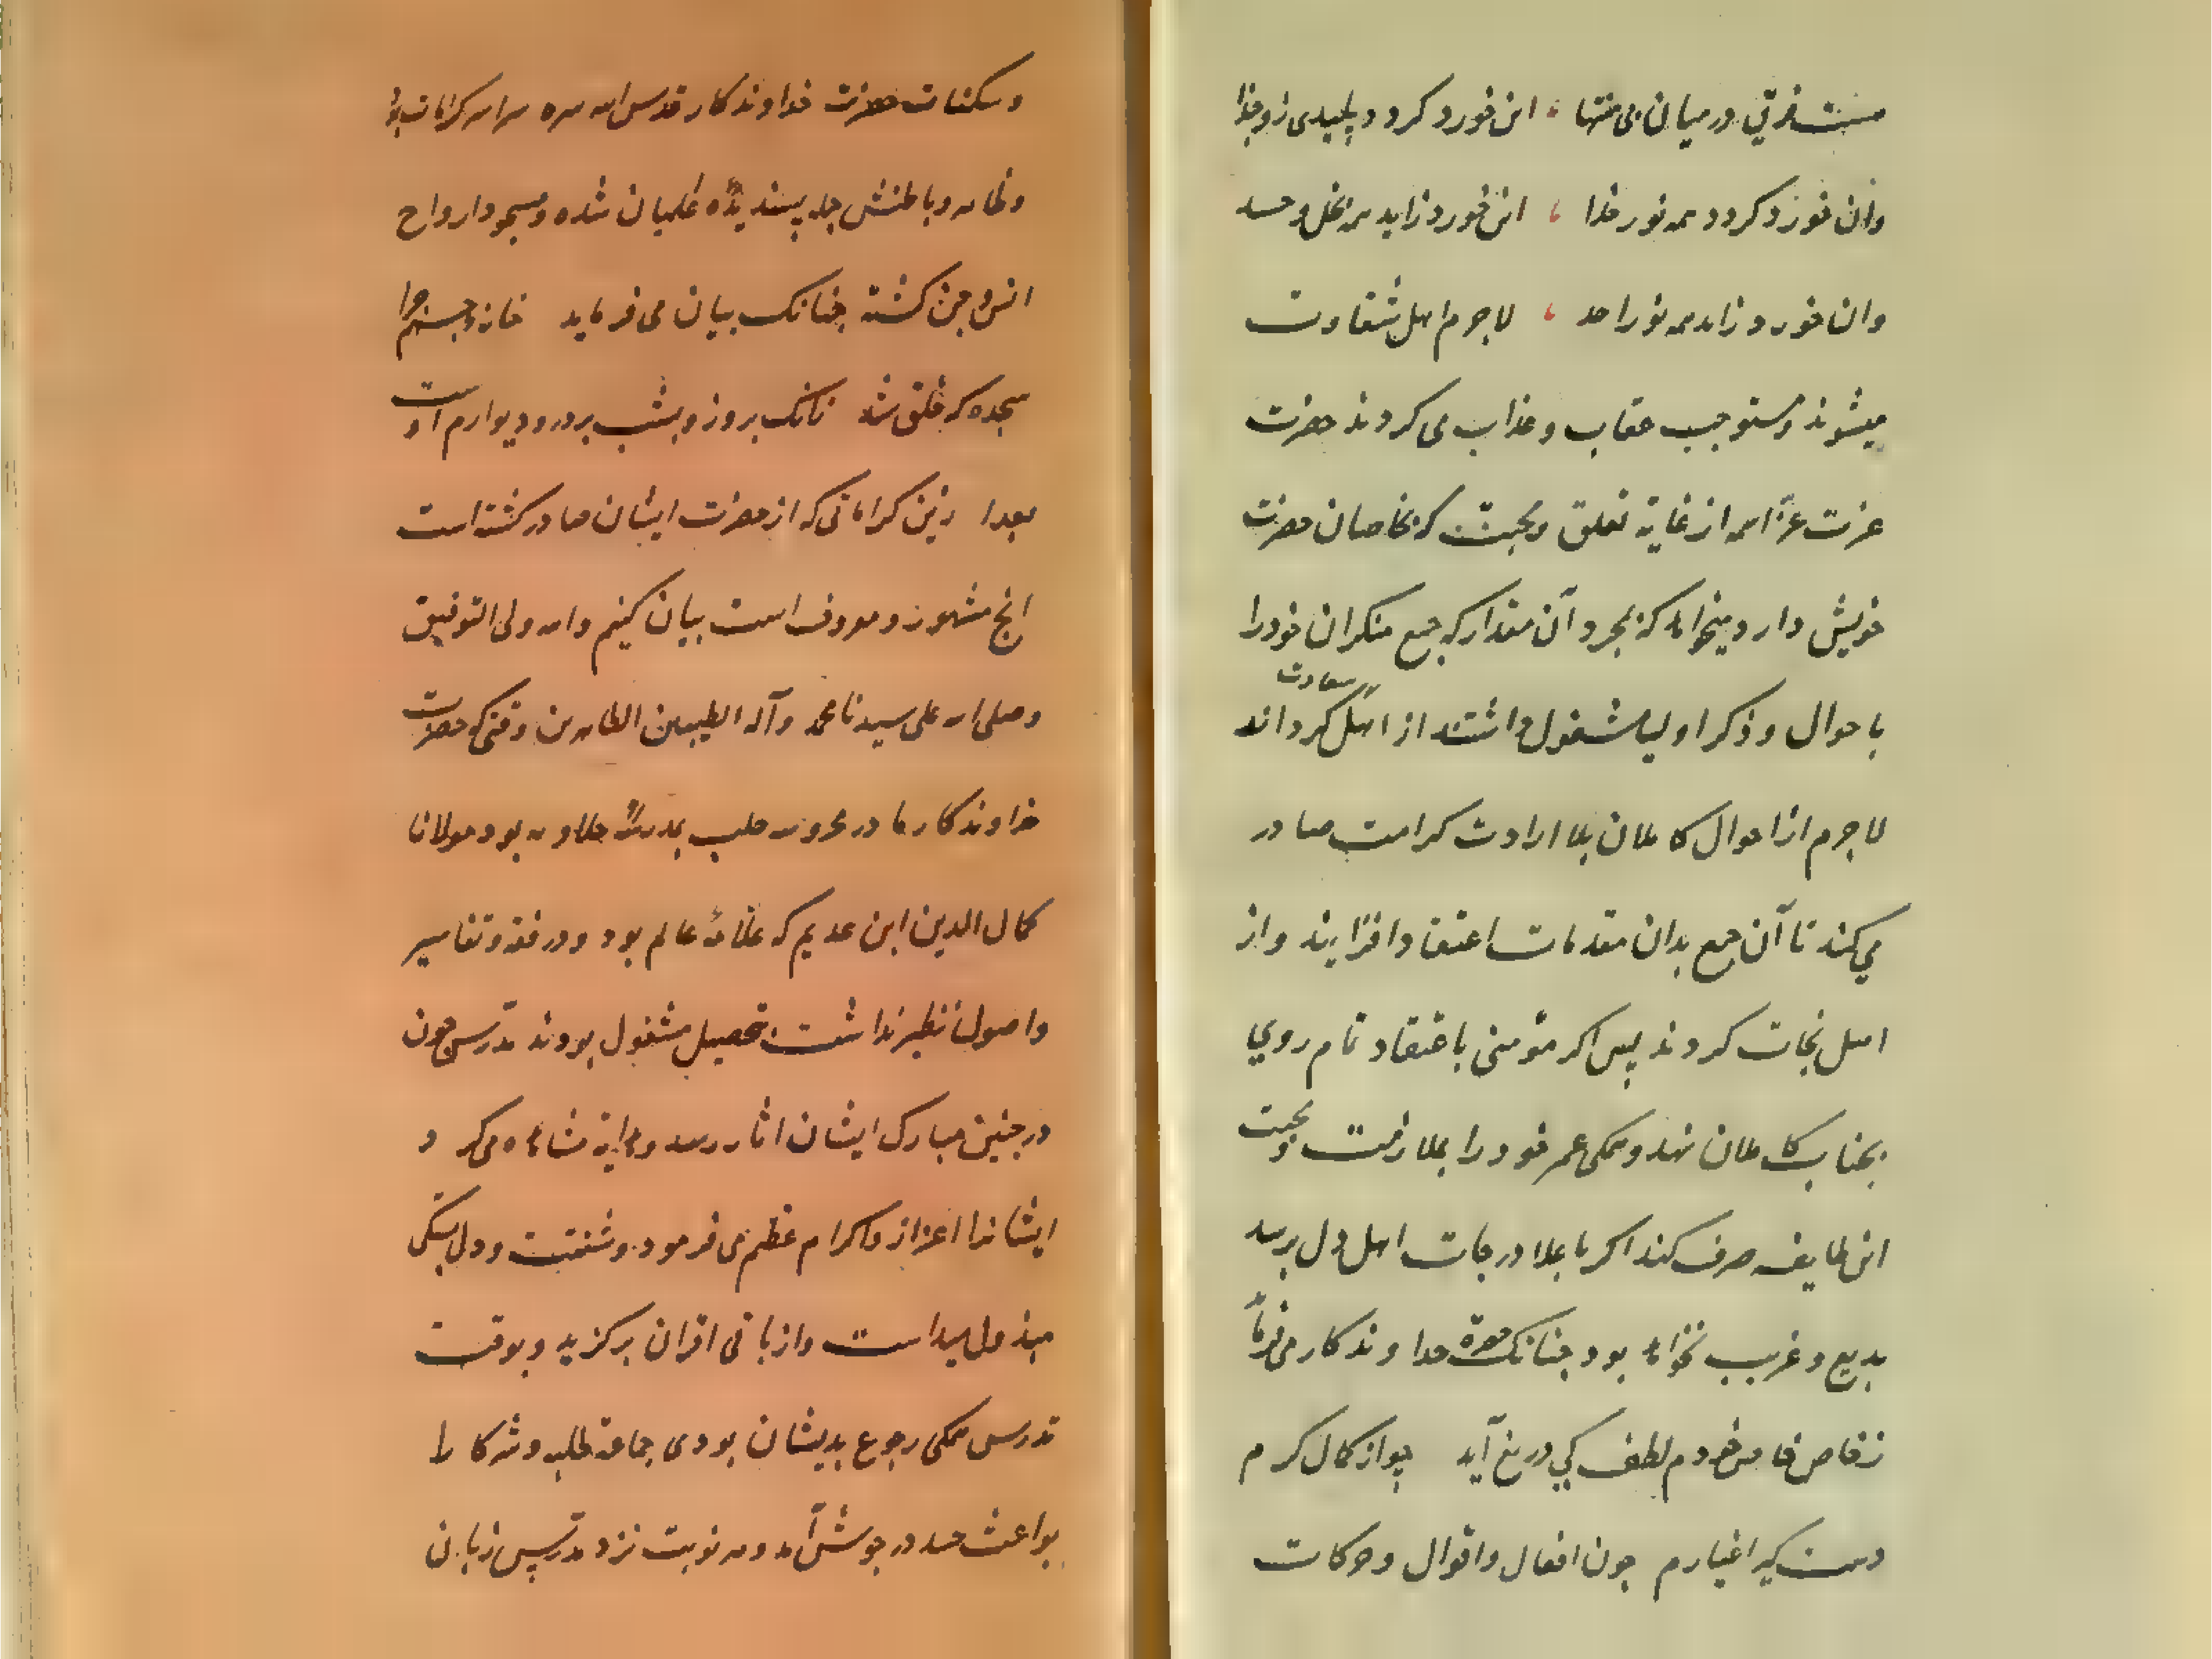 هست فرقی درمیان بی منتها ، این خورد کردد پلیدی زو جدا
وان خورد کردد همه نور خدا ، این خورد زاید همه بخل و حسد
وان خورد زاید همه نور احد ، لاجرم اهل شقاوت
میشوند و مستوجب عقاب و عذاب می کردند حضرت
عزت عز اسمه از غایة تعلق و محبت که بخاصان حضرت
خویش دارد میخواهد که بمجرد آن مقدار که جمع منکران خود را
باحوال و ذکر اولیا مشغول داشتند از اهل سعادت کرداند
لاجرم از احوال کاملان بلا ارادت کرامت صادر
می کند تا آن جمع بدان مقدمات اعتقاد افزایند و از
اهل نجات کردند پس اکر مؤمنی باعتقاد تمام روی
بجناب کاملان نهد و همکی عمر خود را بملازمت و محبت
این طایفه صرف کند اکر باعلا درجات اهل دل برسد
بدیع و غریب نخواهد بود چنانک حضرة خداوندکار می فرماید
ز خاص خاص خودم لطف کی دریغ آید چو از کمال کرم
دست کیر اغیارم چون افعال و اقوال و حرکات
و سکنات حضرت خداوندکار قدس الله سره سراسر کرامات بود
و ظاهر و باطنش جمله پسندیده علمیان شده و مسجود ارواح
انس و جن کشته چنانک بیان می فرماید خانه جسم چرا
سجده که خلق شد زانک بروز و بشب بر در و دیوارم اوست
بعدا زین کراماتی که از حضرت ایشان صادر کشته است
انچ مشهور و معروف است بیان کنیم والله ولی التوفیق
وصلی الله علی سیدنا محمد وآله الطیبین الطاهرین وقتی که حضرت
خداوندکار ما در محروسه حلب بمدرسه حلاویه بود مولانا
کمال الدین ابن عدیم که علامهٔ عالم بود و در فقه و تفاسیر
و اصول نظیر نداشت بتحصیل مشغول بودند مدرس چون
در جبین مبارک ایشان اثار رشد و هدایة مشاهده می کرد
ایشانرا اعزاز و اکرام عظیم می فرمود و شفقت و دل بستکی
مبذول میداشت و از باقی اقران برکزیده و بوقت
تدریس همکی رجوع بدیشان بودی جماعة طلبه و شرکا را
بواعث حسد در جوش آمد و هر نوبت نزد مدرس زبان